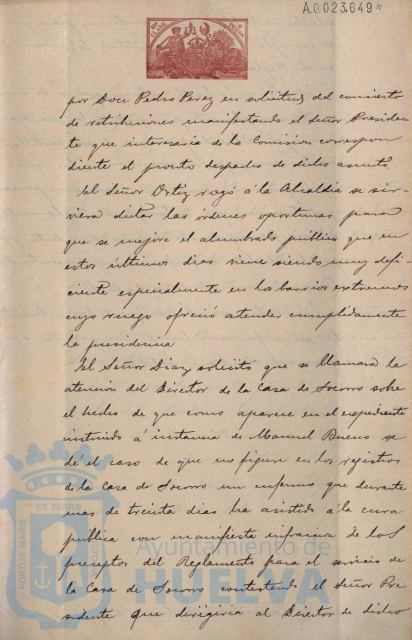 A.0.023.649*
por Don Pedro Perez en solicitud del concierto
de retribuciones manifestando el Señor Presiden
te que interesaria de la Comision correspon
diente el pronto despacho de dicho asunto.
El Señor Ortiz rogó á la Alcaldia se sir
viera dictar las órdenes oportunas para
que se mejore el alumbrado público que en
estos últimos dias viene siendo muy defi
ciente especialmente en los barrios extremos
cuyo ruego ofreció atender cumplidamente
la presidencia
El Señor Diaz solicitó que se llamara la
atencion del Director de la Casa de Socorro sobre
el hecho de que como aparece en el expediente
instruido á instancia de Manuel Bueno se
dé el caso de que no figure en los registros
de la Casa de Socorro un enfermo que durante
mas de treinta dias ha asistido á la cura
publica con manifiesta infraccion de los
preceptos del Reglamento para el servicio de
la Casa de Socorro contestando el Señor Pre
sidente que dirigiria al Director de dicho
PORTUS MARIS ET TERRÆ
Ayuntamiento de
HUELVA